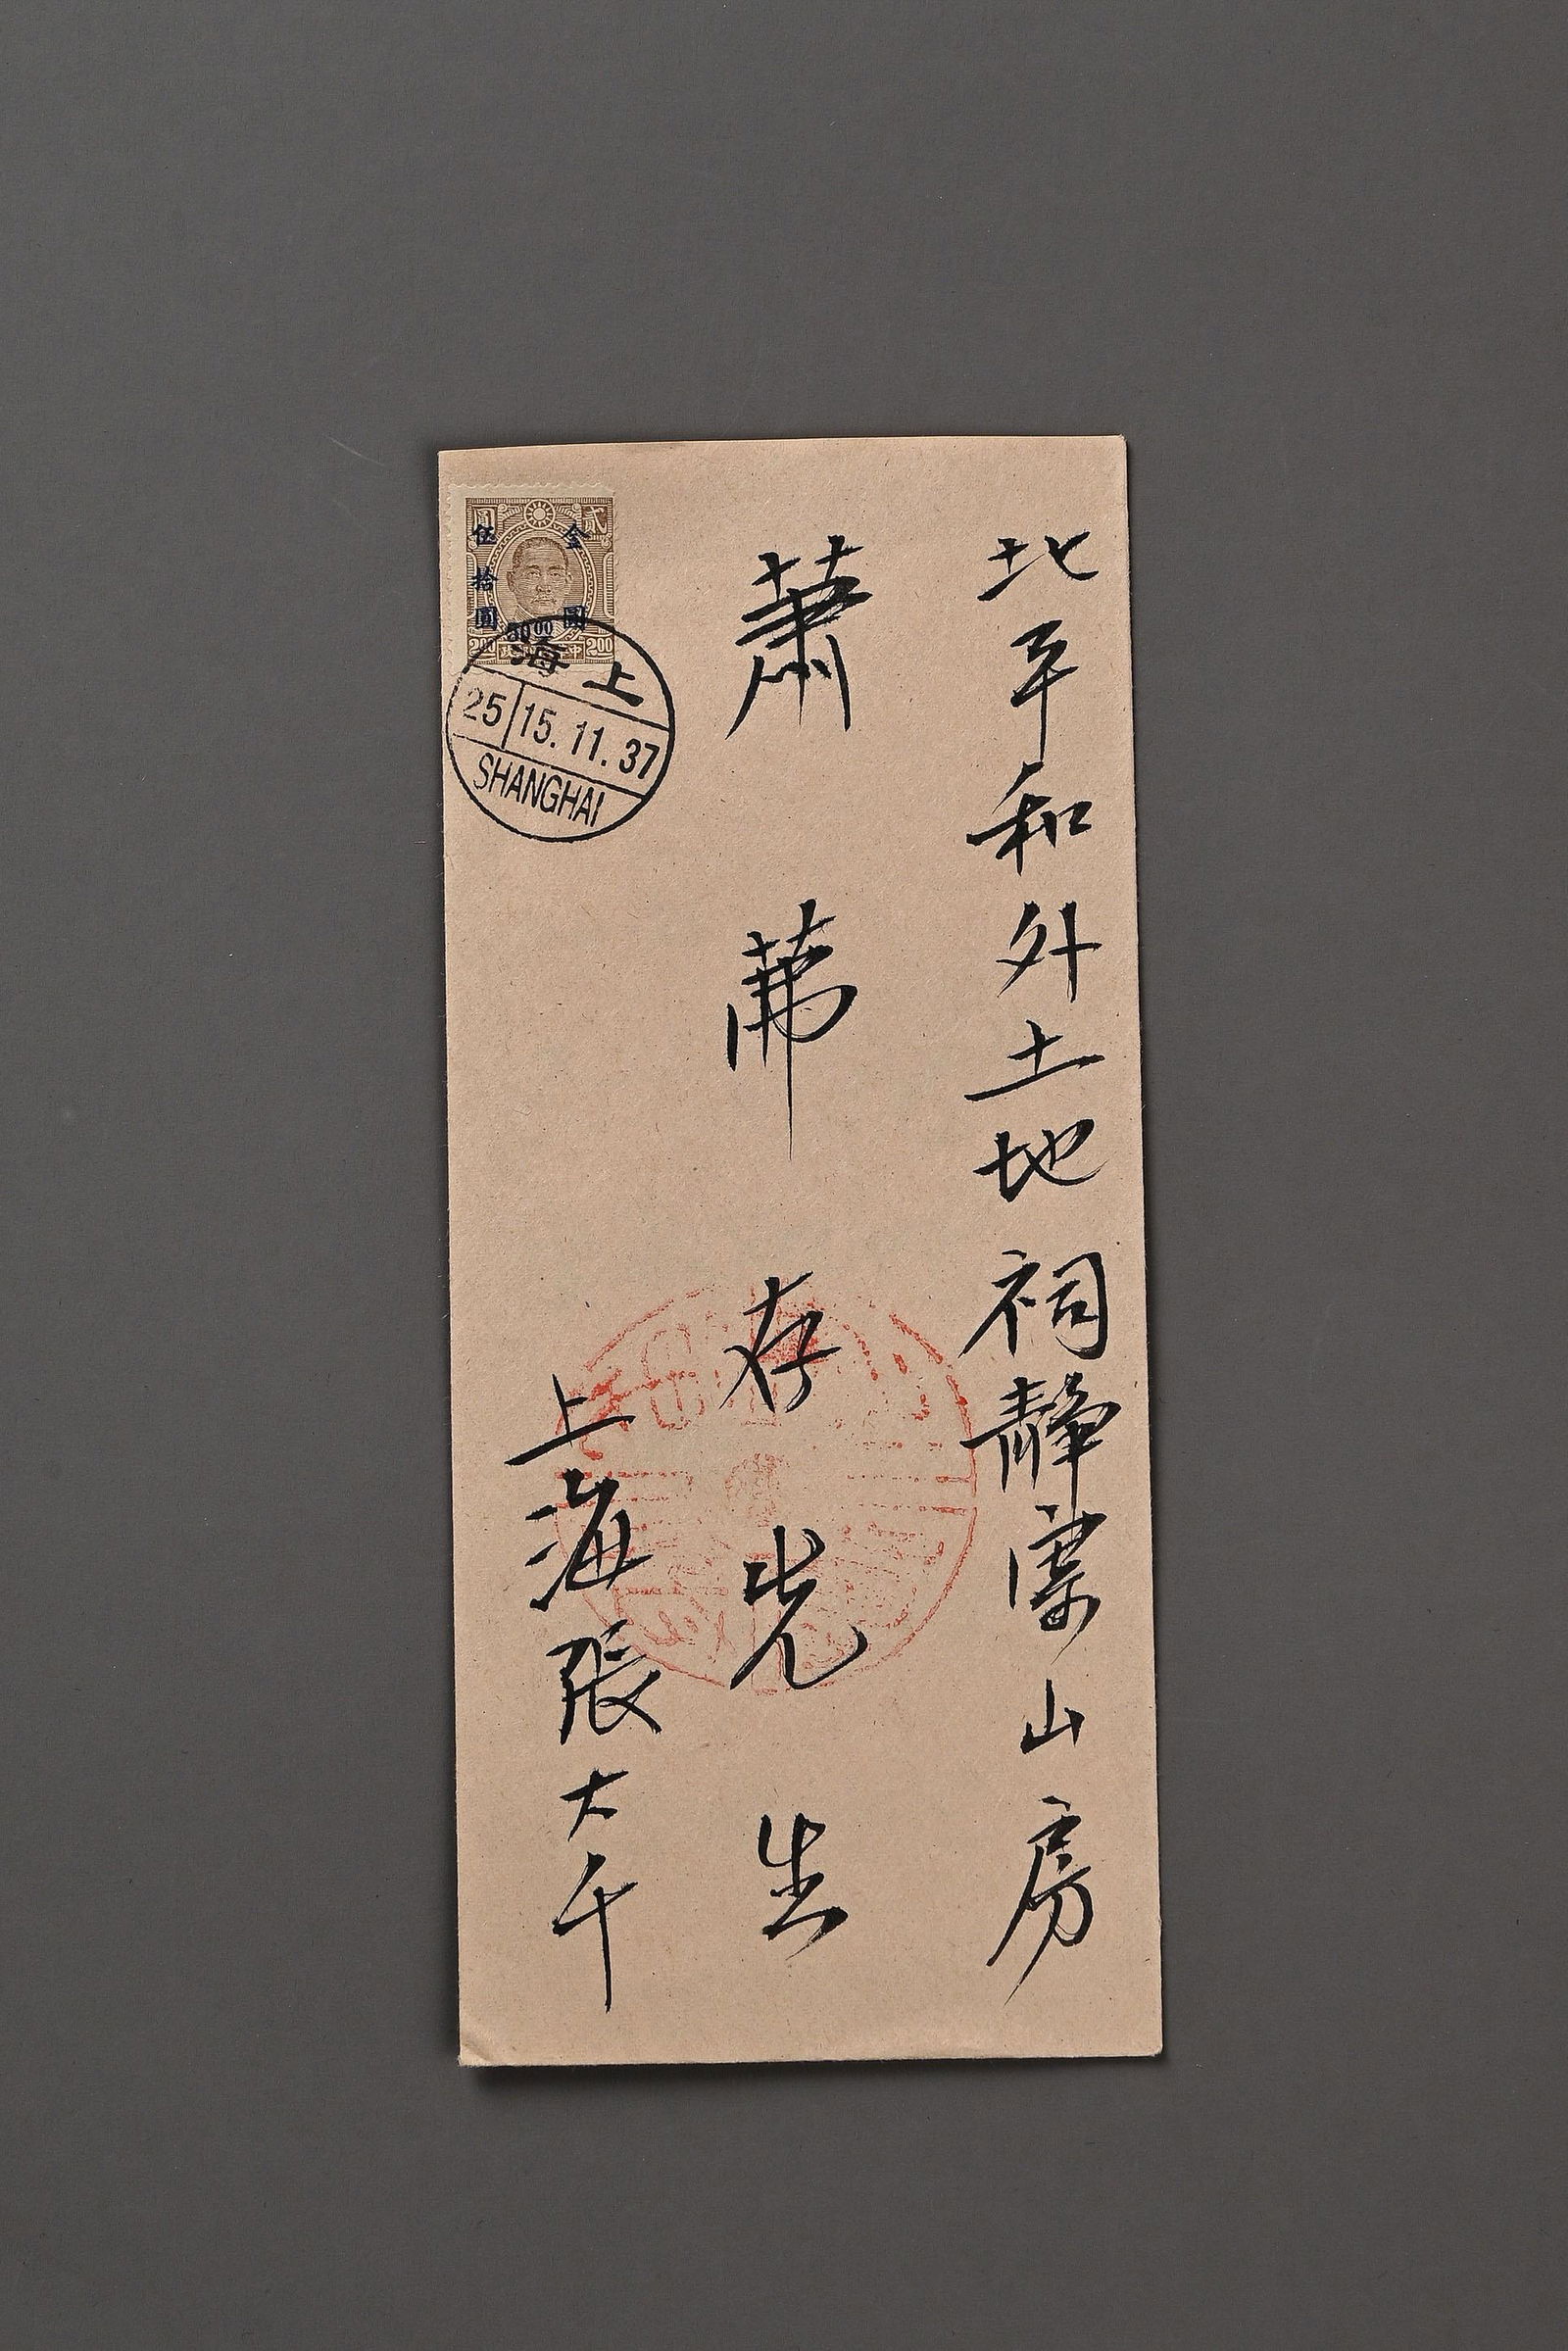 北平和外土地祠静寄山房
萧茀存先生
上海張大千
圓 貳
金圓
伍拾圓
50 00
2.00 2.00
上海
25 15.11.37
SHANGHAI